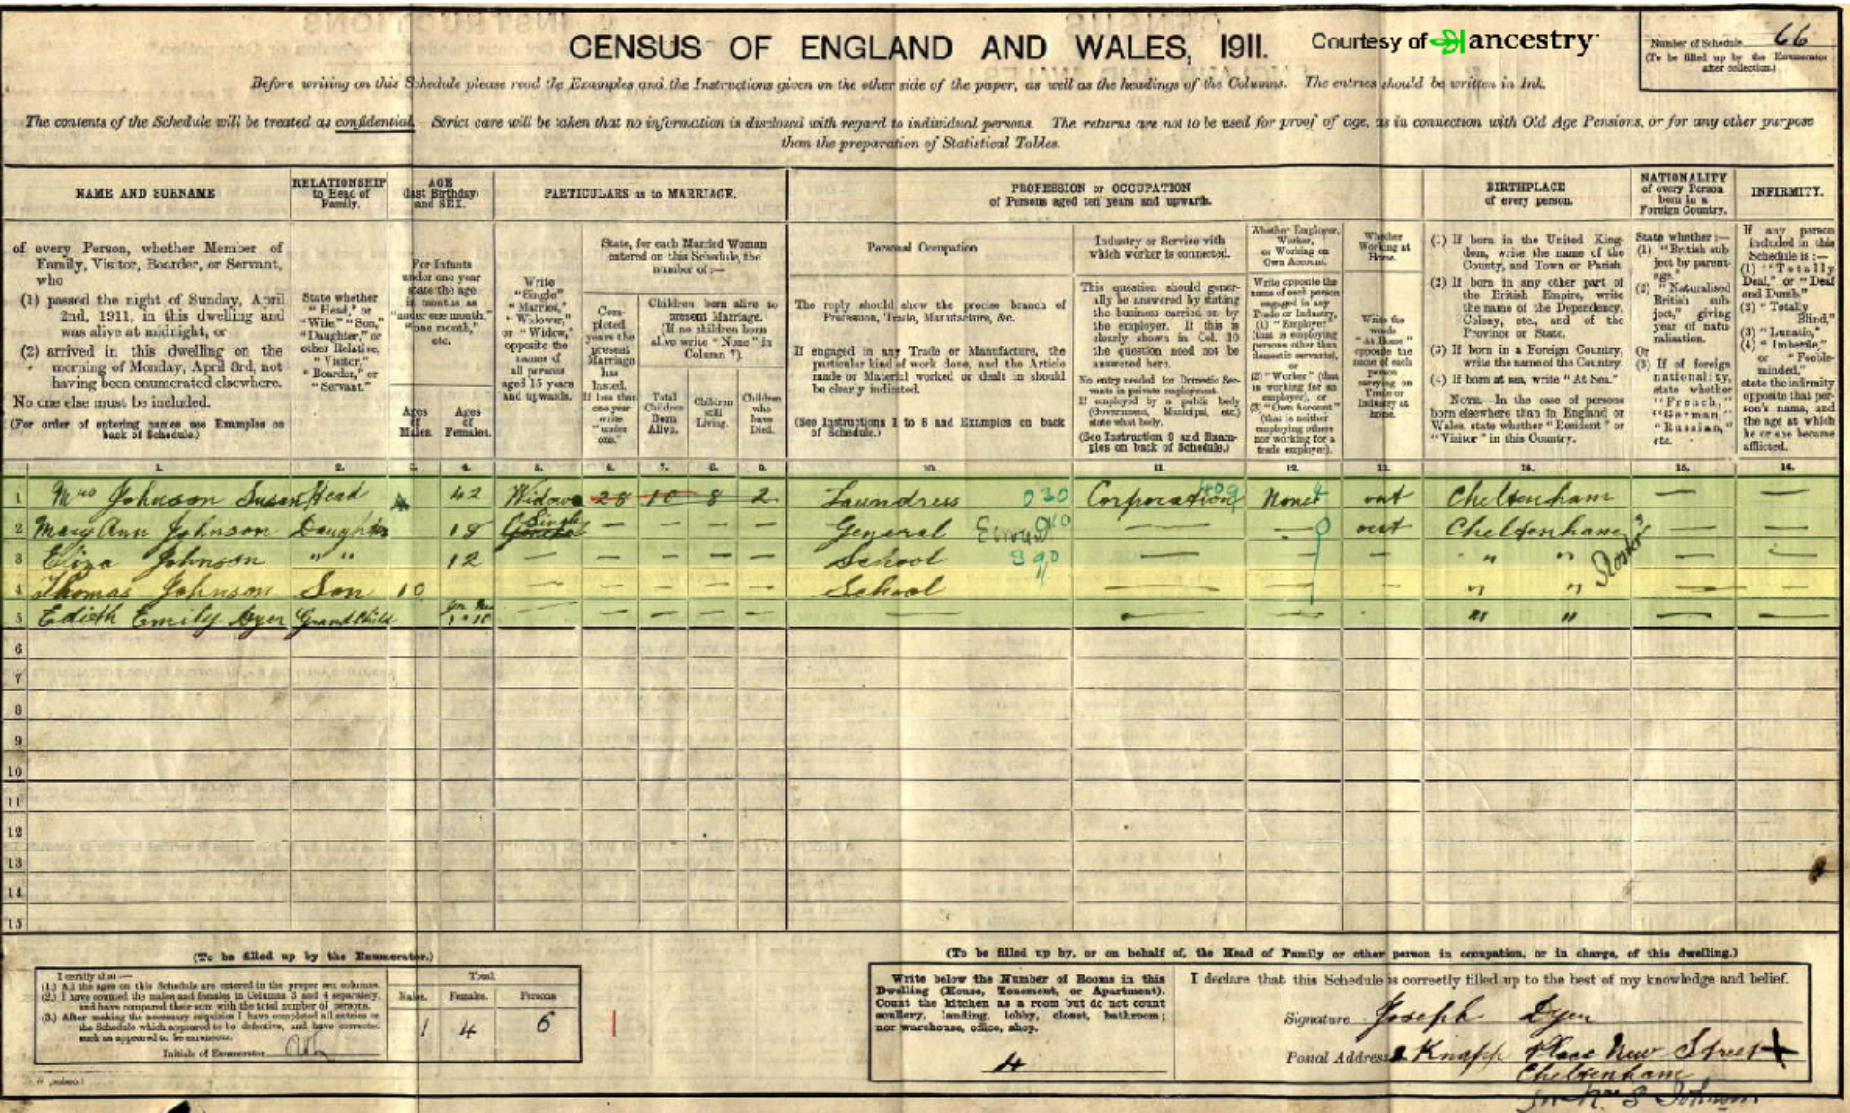 CENSUS OF ENGLAND AND WALES, 1911.
Courtesy of ancestry
Number of Schedule 66
(To be filled up by the Enumerator
after collection.)
Before writing on this Schedule please read the Examples and the Instructions given on the other side of the paper, as well as the headings of the Columns. The entries should be written in Ink.
The contents of the Schedule will be treated as confidential. Strict care will be taken that no information is disclosed with regard to individual persons. The returns are not to be used for proof of age, as in connection with Old Age Pensions, or for any other purpose
than the preparation of Statistical Tables.
NAME AND SURNAME
of every Person, whether Member of
Family, Visitor, Boarder, or Servant,
who
(1) passed the night of Sunday, April
2nd, 1911, in this dwelling and
was alive at midnight, or
(2) arrived in this dwelling on the
morning of Monday, April 3rd, not
having been enumerated elsewhere.
No one else must be included.
(For order of entering names see Examples on
back of Schedule.)
RELATIONSHIP
to Head of
Family.
State whether
"Head," or
"Wife," "Son,"
"Daughter," or
other Relative,
"Visitor,"
"Boarder," or
"Servant."
AGE
(last Birthday)
and SEX.
For Infants
under one year
state the age
in months as
"under one month,"
"one month,"
etc.
Ages
of
Males.
Ages
of
Females.
PARTICULARS as to MARRIAGE.
Write
"Single,"
"Married,"
"Widower,"
or "Widow,"
opposite the
names of
all persons
aged 15 years
and upwards.
State, for each Married Woman
entered on this Schedule, the
number of:—
Completed
years the
present
Marriage
has
lasted.
If less than
one year
write
"under
one."
Children born alive to
present Marriage.
(If no children born
alive write "None" in
Column 7).
Total
Children
Born
Alive.
Children
still
Living.
Children
who
have
Died.
PROFESSION or OCCUPATION
of Persons aged ten years and upwards.
Personal Occupation
The reply should show the precise branch of
Profession, Trade, Manufacture, &c.
If engaged in any Trade or Manufacture, the
particular kind of work done, and the Article
made or Material worked or dealt in should
be clearly indicated.
(See Instructions 1 to 8 and Examples on back
of Schedule.)
Industry or Service with
which worker is connected.
This question should gener-
ally be answered by stating
the business carried on by
the employer. If this is
clearly shown in Col. 10
the question need not be
answered here.
No entry needed for Domestic Ser-
vants in private employment.
If employed by a public body
(Government, Municipal, etc.)
state what body.
(See Instruction 9 and Exam-
ples on back of Schedule.)
Whether Employer,
Worker,
or Working on
Own Account.
Write opposite the
name of each person
engaged in any
Trade or Industry,
(1) "Employer"
(that is employing
persons other than
domestic servants),
or
(2) "Worker" (that
is working for an
employer), or
(3) "Own Account"
(that is neither
employing others
nor working for a
trade employer).
Whether
Working at
Home.
Write the
words
"At Home"
opposite the
name of each
person
carrying on
Trade or
Industry at
home.
BIRTHPLACE
of every person.
(1) If born in the United King-
dom, write the name of the
County, and Town or Parish
(2) If born in any other part of
the British Empire, write
the name of the Dependency,
Colony, etc., and of the
Province or State.
(3) If born in a Foreign Country,
write the name of the Country.
(4) If born at sea, write "At Sea."
NOTE.—In the case of persons
born elsewhere than in England or
Wales, state whether "Resident" or
"Visitor" in this Country.
NATIONALITY
of every Person
born in a
Foreign Country.
State whether:—
(1) "British sub-
ject by parent-
age,"
(2) "Naturalised
British sub-
ject," giving
year of natu-
ralisation.
Or
(3) If of foreign
nationality,
state whether
"French,"
"German,"
"Russian,"
etc.
INFIRMITY.
If any person
included in this
Schedule is:—
(1) "Totally
Deaf," or "Deaf
and Dumb,"
(2) "Totally
Blind,"
(3) "Lunatic,"
(4) "Imbecile,"
or "Feeble-
minded,"
state the infirmity
opposite that per-
son's name, and
the age at which
he or she became
afflicted.
1. 2. 3. 4. 5. 6. 7. 8. 9. 10. 11. 12. 13. 14. 15. 16.
1 Mrs Johnson Susan Head 42 Widow 28 10 8 2 Laundress 030 Corporation 409 None out Cheltenham
2 Mary Ann Johnson Daughter 18 Single — — — — General — — out Cheltenham — —
3 Eliza Johnson " " 12 — — — — — School 390 — — — " " — —
4 Thomas Johnson Son 10 — — — — — School — — — " " — —
5 Edith Emily Dyer Grand Child — — — — — — — — — " " — —
6
7
8
9
10
11
12
13
14
15
(To be filled up by the Enumerator.)
I certify that:—
(1.) All the ages on this Schedule are entered in the proper sex columns.
(2.) I have counted the males and females in Columns 3 and 4 separately,
and have compared their sum with the total number of persons.
(3.) After making the necessary enquiries I have completed all entries on
the Schedule which appeared to be defective, and have corrected
such as appeared to be erroneous.
Initials of Enumerator
Total
Males. Females. Persons
1 4 5
(To be filled up by, or on behalf of, the Head of Family or other person in occupation, or in charge, of this dwelling.)
Write below the Number of Rooms in this
Dwelling (House, Tenement, or Apartment).
Count the kitchen as a room but do not count
scullery, landing, lobby, closet, bathroom;
nor warehouse, office, shop.
4
I declare that this Schedule is correctly filled up to the best of my knowledge and belief.
Signature Joseph Dyer
Postal Address Knapp Place New Street
Cheltenham
for Mrs S Johnson